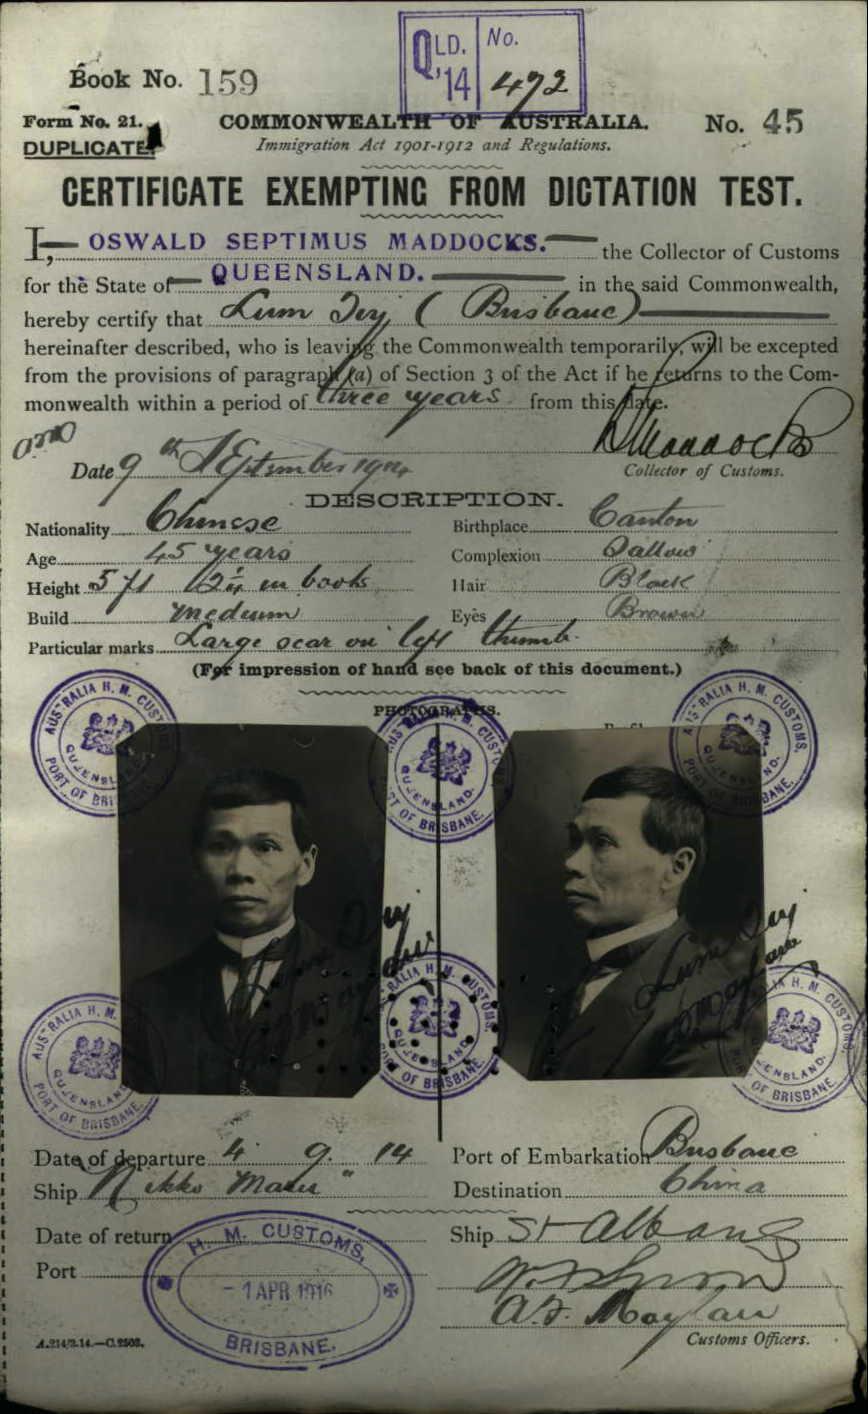 QLD. '14 No. 472
Book No. 159
Form No. 21.
DUPLICATE.
COMMONWEALTH OF AUSTRALIA.
No. 45
Immigration Act 1901-1912 and Regulations.
CERTIFICATE EXEMPTING FROM DICTATION TEST.
I, OSWALD SEPTIMUS MADDOCKS. the Collector of Customs
for the State of QUEENSLAND. in the said Commonwealth,
hereby certify that Lum Jey (Brisbane)
hereinafter described, who is leaving the Commonwealth temporarily, will be excepted
from the provisions of paragraph (a) of Section 3 of the Act if he returns to the Com-
monwealth within a period of three years from this date.
Date 9th September 1914
Collector of Customs.
DESCRIPTION.
Nationality Chinese Birthplace Canton
Age 45 years Complexion Sallow
Height 5 ft 2¼ in boots Hair Black
Build Medium Eyes Brown
Particular marks Large scar on left thumb.
(For impression of hand see back of this document.)
PHOTOGRAPHS.
AUSTRALIA H. M. CUSTOMS. QUEENSLAND. PORT OF BRISBANE.
AUSTRALIA H. M. CUSTOMS. QUEENSLAND. PORT OF BRISBANE.
AUSTRALIA H. M. CUSTOMS. QUEENSLAND. PORT OF BRISBANE.
Lum Jey
Lum Jey
AUSTRALIA H. M. CUSTOMS. QUEENSLAND. PORT OF BRISBANE.
AUSTRALIA H. M. CUSTOMS. QUEENSLAND. PORT OF BRISBANE.
AUSTRALIA H. M. CUSTOMS. QUEENSLAND. PORT OF BRISBANE.
Date of departure 4 9. 14 Port of Embarkation Brisbane
Ship Nikko Maru" Destination China
Date of return Ship St Albans
Port
H. M. CUSTOMS,
- 1 APR 1916
BRISBANE.
Customs Officers.
A.214/3.14.—C.2503.